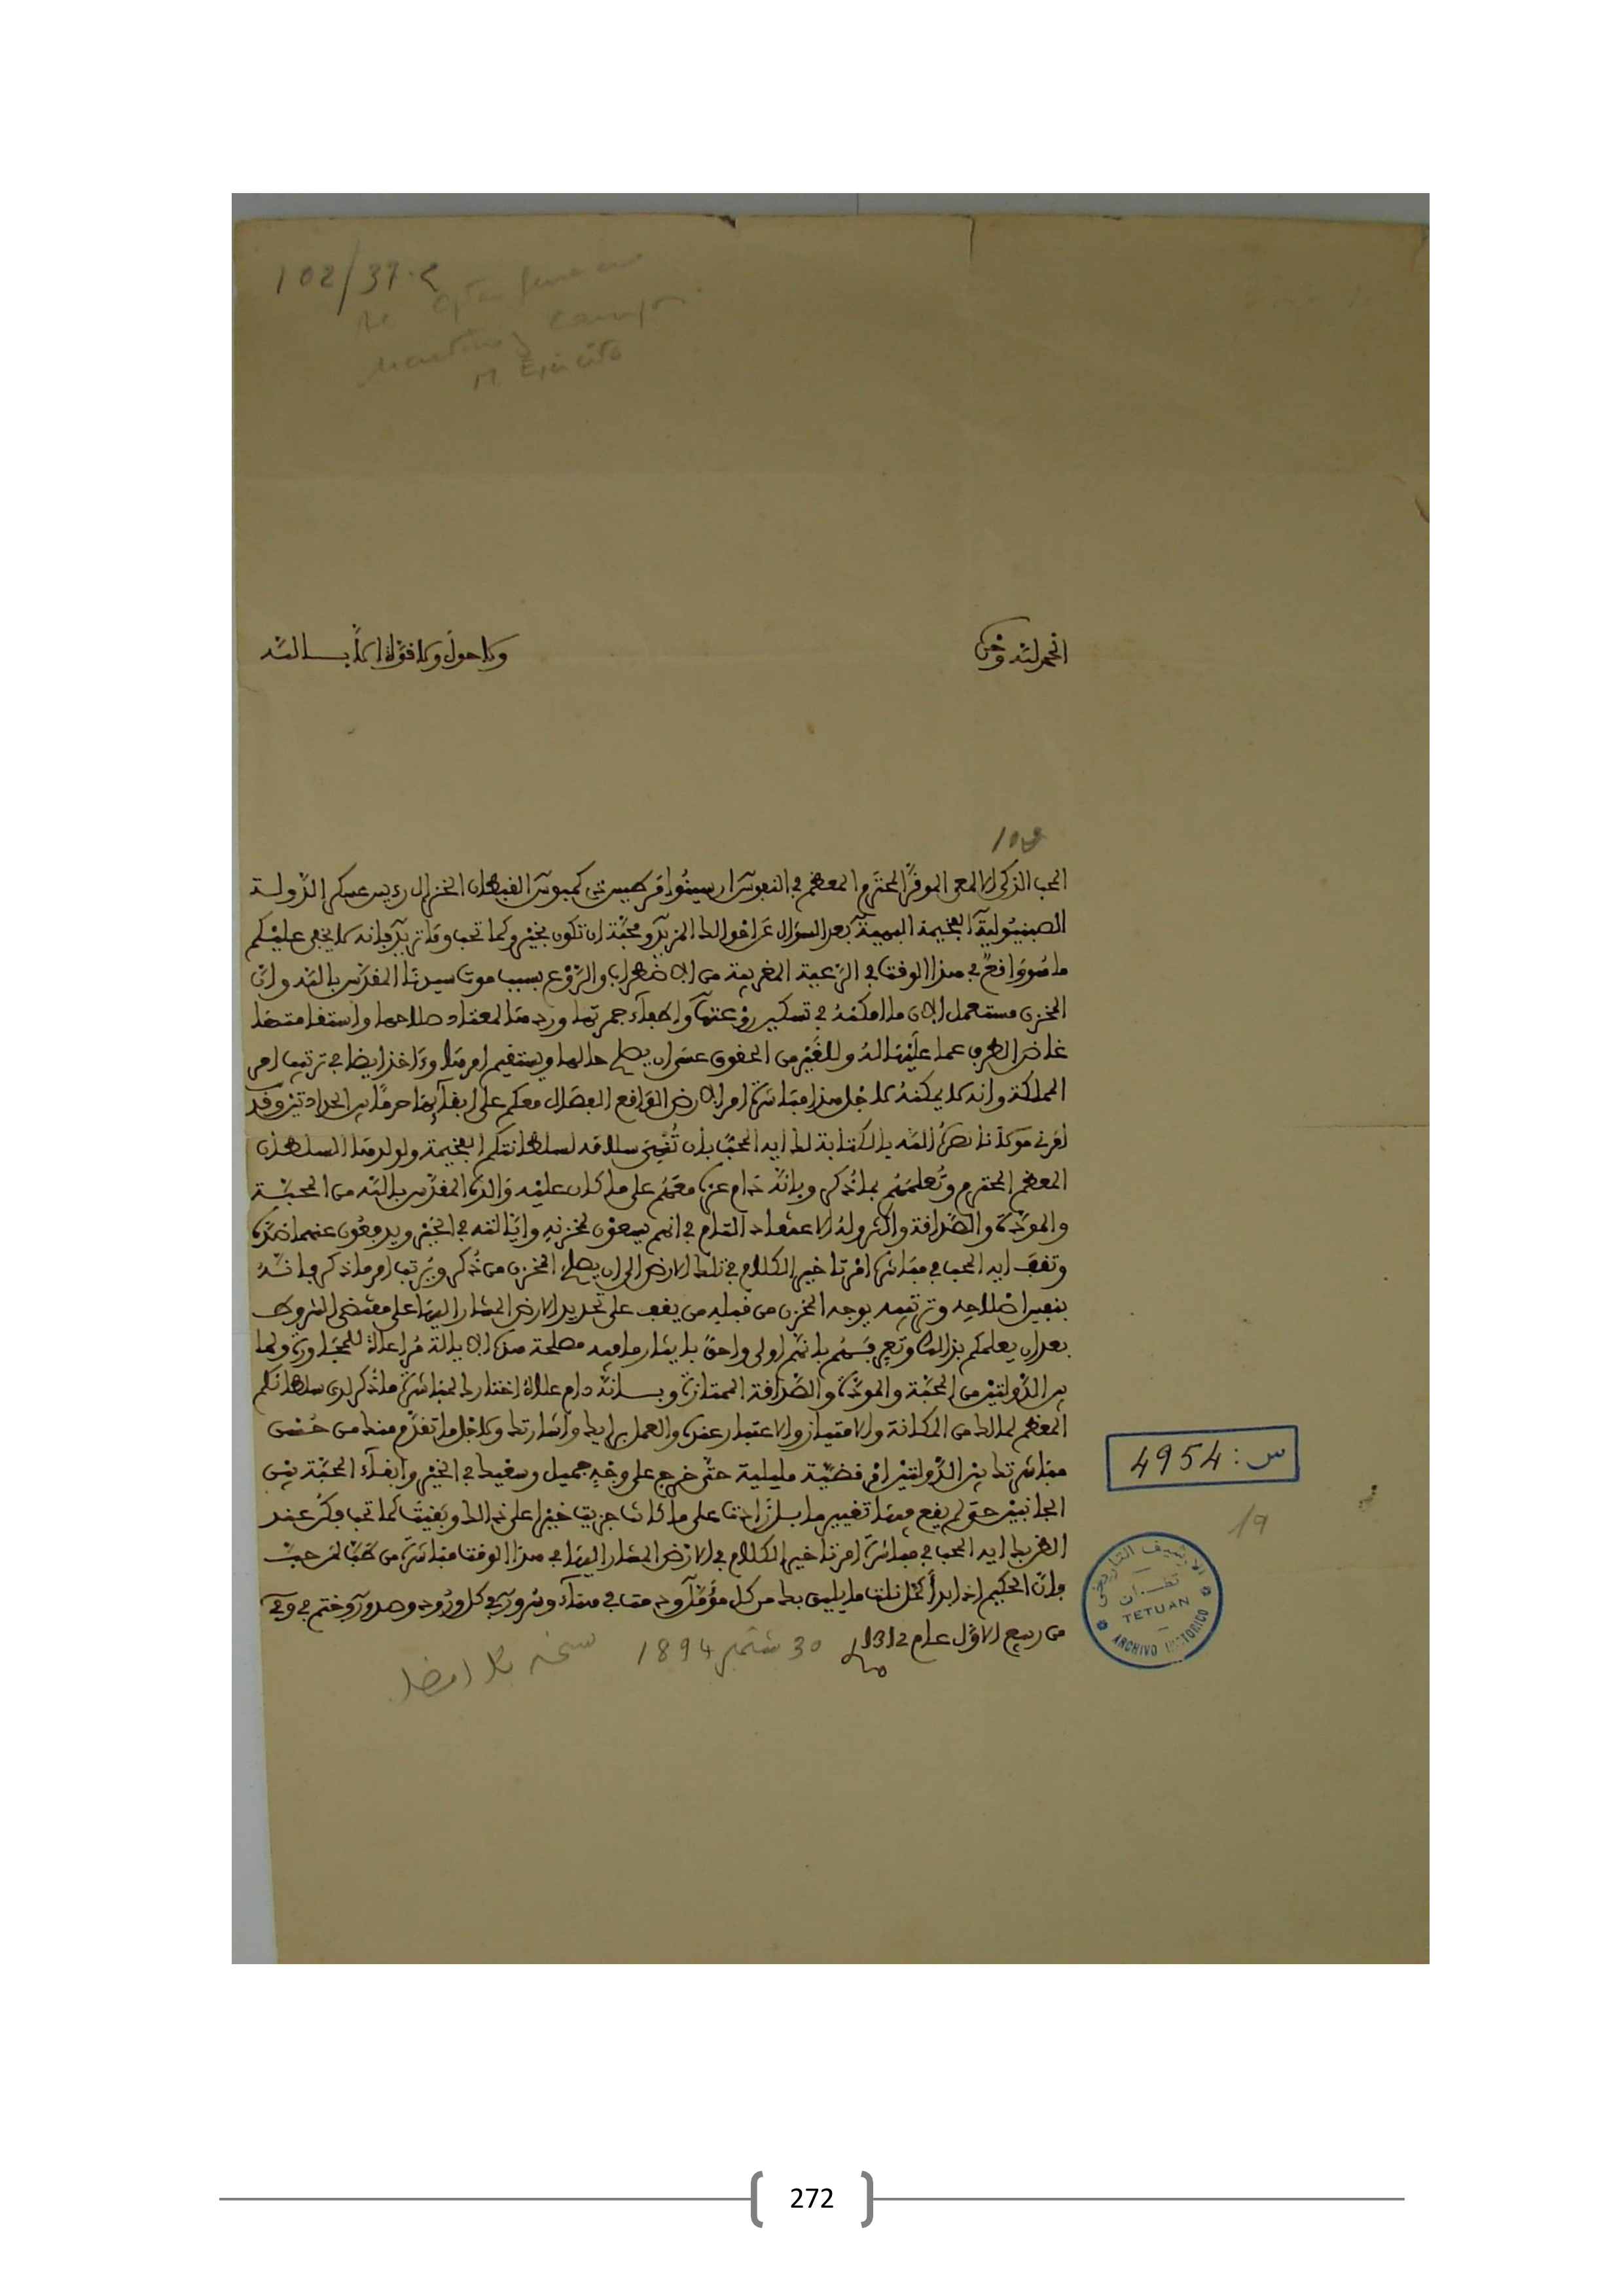 102/37.2
Martinez Campos
M Ejército
الحمد لله وحده
ولا حول ولا قوة إلا بالله
102
المحب الزكي الالمعي الموقر المحترم المعظم في النفوس ارسينوا مرطينس كمبوس الفبطان الخنرال رءيس عسكر الدولة
الصبنيولية الفخيمة البهية بعد السؤال عن احوالك المزيد ومحبة ان تكون بخير وكما تحب وما تريد فانه لا يخفى عليكم
ما هو واقع في هذا الوقت في الرعية المغربية من الاضطراب والروع بسبب موت سيدنا المقدس بالله وان
المخزن مستعمل الان ما امكنه في تسكين روعتها واطفاء جمرتها وردها لمعتاد صلاحها واستقامتها
غاض الطرف عما عليها له وللغير من الحقوق عسى ان يصلح حالها ويستقيم امرها وءاخذ ايضا في ترتيب امر
المملكة وانه لا يمكنه لاجل هذا مباشرة امر الارض الواقع الفصال معكم على ابقاءها حرما بين الحدادتين وقد
امرني مولانا نصره الله بالكتابة لك ايه المحب بان تنهي سلامه لسلطانتكم الفخيمة ولولدها السلطان
المعظم المحترم وتعلمهم بما ذكر وبانه دام عزه معهم على ما كان عليه والده المقدس بالله من المحبة
والمودة والصداقة وان له الاعتقاد التام في انهم يسعون لمخزنه وايالته في الخير ويدفعون عنهما ضده
وتقف ايه المحب في مباشرة امر تاخير الكلام في تلك الارض الى ان يصلح المخزن من ذكر ويرتب امر ما ذكر فانه
بنفس اصلاحه وترتيبه يوجه المخزن من قبله من يقف على تحديد الارض المشار اليها على مقتضى الشروط
بعد ان يعلمكم بذلك وتعرفهم بانهم اولى واحق بايثار ما فيه مصلحة هذه الايالة مراعاة للمجاورة ولما
بين الدولتين من المحبة والمودة والصداقة الممتازة وبانه دام علاه اختارك لمباشرة ما ذكر لدى سلطانكم
المعظم لما لك من المكانة والامتياز والاعتبار عنده والعمل برايك واشارتك ولاجل ما تقدم منك من حسن
مباشرتك بين الدولتين في قضية مليلية حتى خرج على وجه جميل وسعيك في الخير وابقاء المحبة بين
الجانبين حتى لم يقع فيها تغيير ما بل زادت على ما كانت جزيت خيرا على ذلك وبقيت كما تحب فكن عند
الظن بك ايه المحب في مباشرة امر تاخير الكلام في الارض المشار اليها في هذا الوقت مباشرة من طب لمن حب
فان الحكيم اذا ابدأ كمل نلت ما يليق بك من كل مؤمل ودمت في هناء وسرور في كل ورود وصدور وختم في وفي
من ربيع الاول عام 1312
30 شتنبر 1894
نسخة بلا امضا
س: 4954
19
الارشيف التاريخي
تطوان
TETUAN
ARCHIVO HISTORICO
272